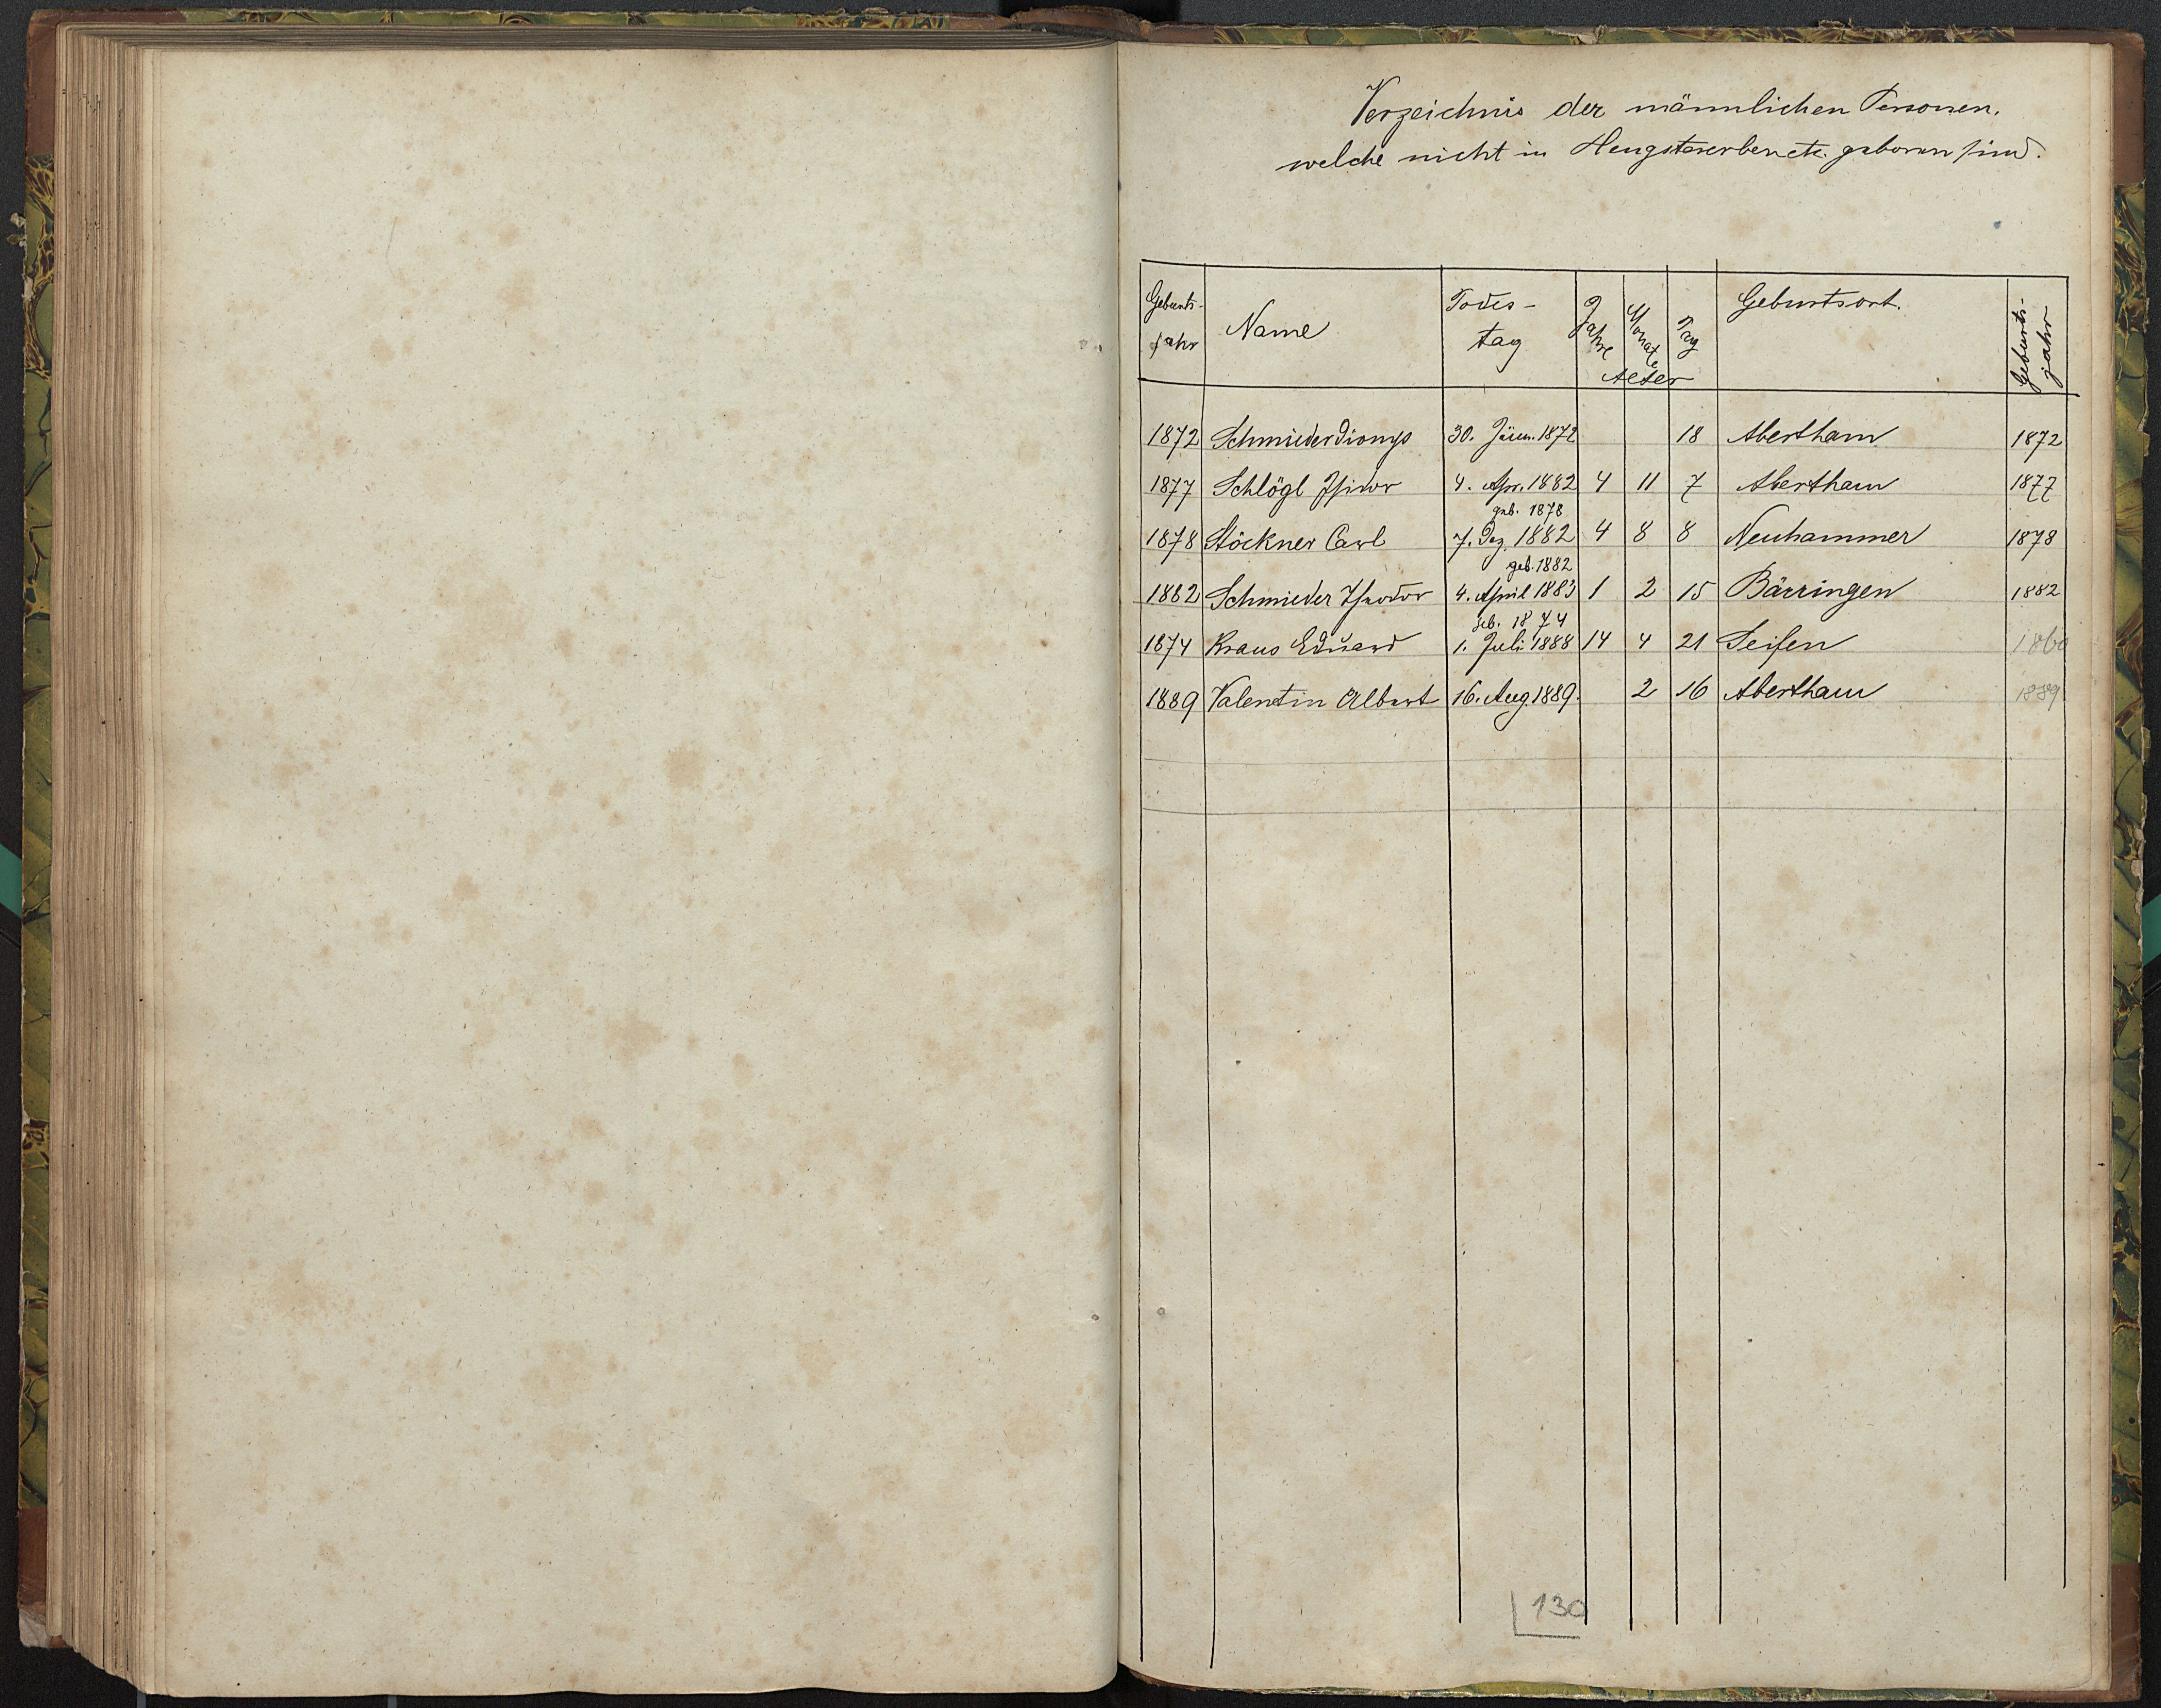 Verzeichnis der männlichen Personen,
welche nicht in Hengstererben etc. geboren sind.
Geburts- jahr Name Todes- tag Jahre Monate Tag Alter Geburtsort. Geburts- jahr
1872 Schmieder Dionys 30. Jänn. 1872 18 Abertham 1872
1877 Schlögl Isidor 4. Apr. 1882 4 11 7 Abertham 1877
geb. 1878
1878 Stöckner Carl 7. Dez. 1882 4 8 8 Neuhammer 1878
geb. 1882
1882 Schmieder Theodor 4. April 1883 1 2 15 Bärringen 1882
geb. 1874
1874 Kraus Eduard 1. Juli 1888 14 4 21 Seifen
1889 Valentin Albert 16. Aug. 1889. 2 16 Abertham 1889
130